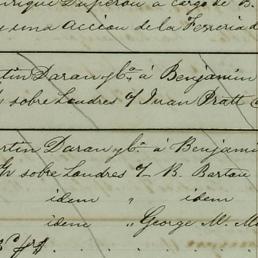 rique Duperou a cargo de B.
una Accion de la Tesoreria d
tin Daran y Ca. á Benjamin
sobre Londres c/ Juan Pratt
rtin Daran y Ca. á Benjami
sobre Londres c/ B. Bartau
idem " idem
idem " George M. M